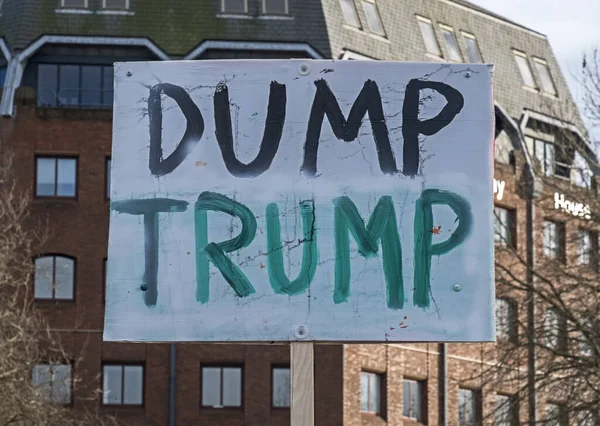 DUMP
TRUMP
House